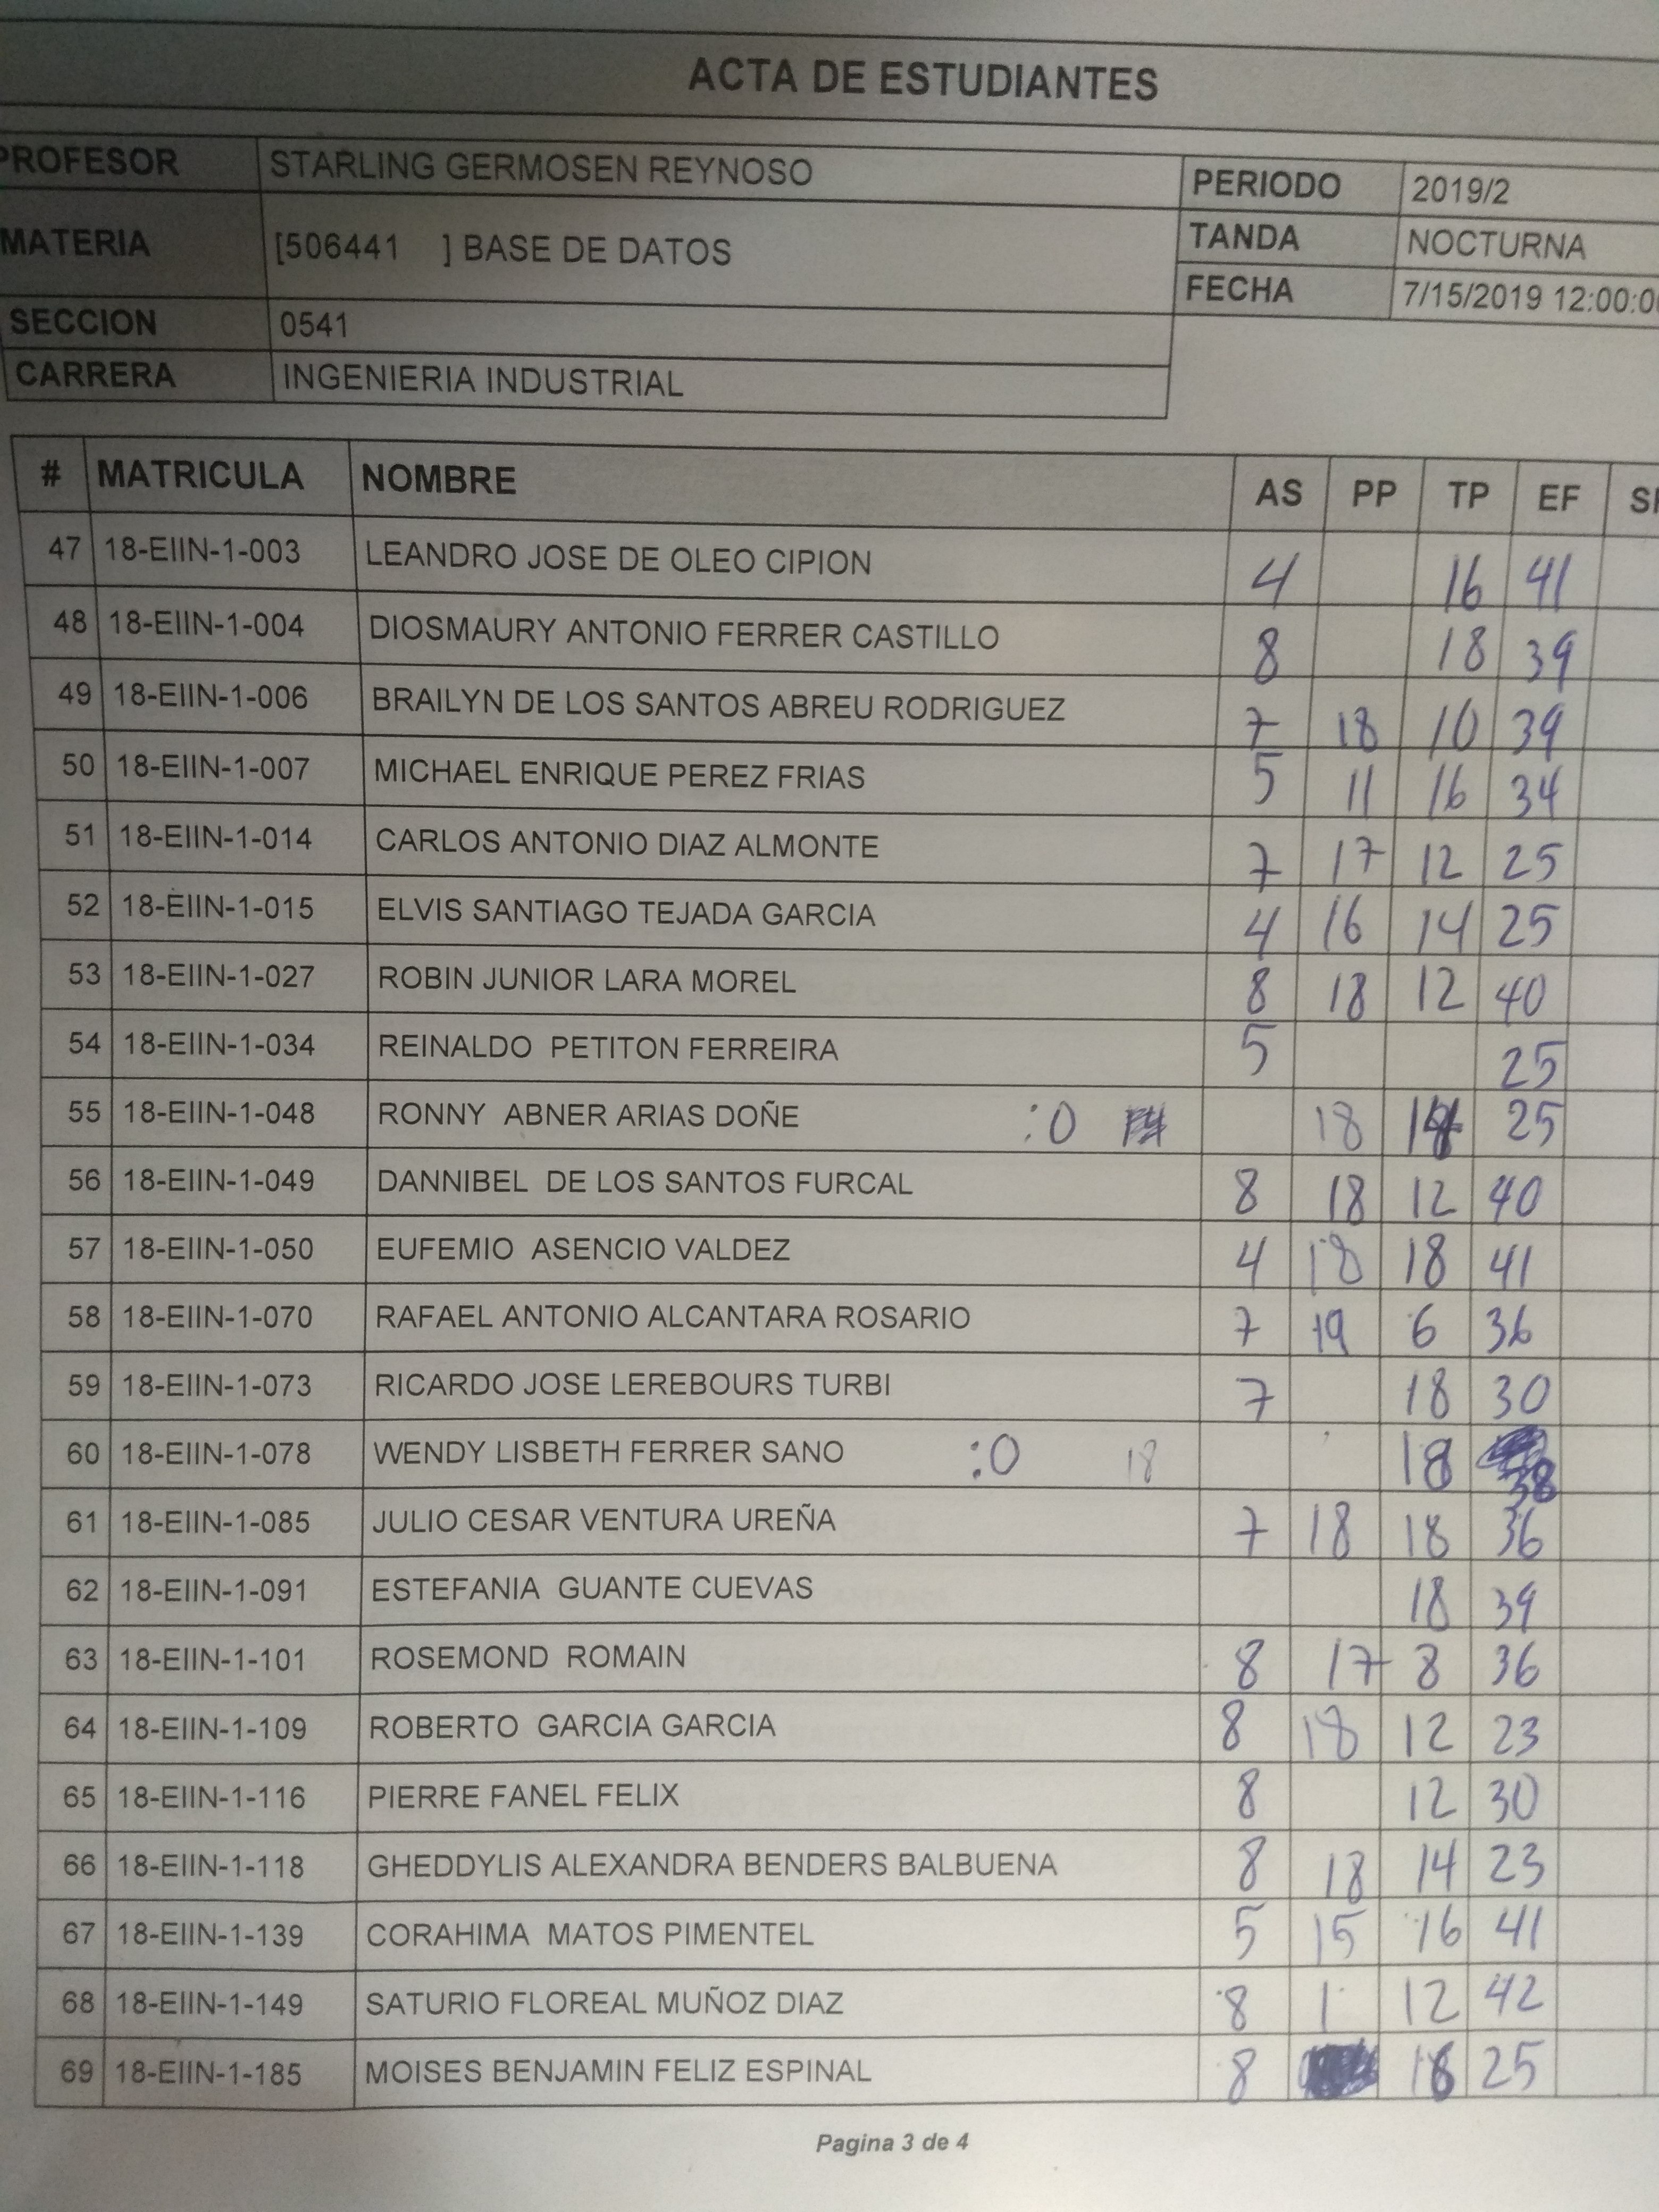 ACTA DE ESTUDIANTES
PROFESOR STARLING GERMOSEN REYNOSO PERIODO 2019/2
MATERIA [506441 ] BASE DE DATOS TANDA NOCTURNA
FECHA 7/15/2019 12:00:0
SECCION 0541
CARRERA INGENIERIA INDUSTRIAL
# MATRICULA NOMBRE AS PP TP EF
47 18-EIIN-1-003 LEANDRO JOSE DE OLEO CIPION 4 16 41
48 18-EIIN-1-004 DIOSMAURY ANTONIO FERRER CASTILLO 8 18 39
49 18-EIIN-1-006 BRAILYN DE LOS SANTOS ABREU RODRIGUEZ 7 18 10 39
50 18-EIIN-1-007 MICHAEL ENRIQUE PEREZ FRIAS 5 11 16 34
51 18-EIIN-1-014 CARLOS ANTONIO DIAZ ALMONTE 7 17 12 25
52 18-EIIN-1-015 ELVIS SANTIAGO TEJADA GARCIA 4 16 14 25
53 18-EIIN-1-027 ROBIN JUNIOR LARA MOREL 8 18 12 40
54 18-EIIN-1-034 REINALDO PETITON FERREIRA 5 25
55 18-EIIN-1-048 RONNY ABNER ARIAS DOÑE :0 18 25
56 18-EIIN-1-049 DANNIBEL DE LOS SANTOS FURCAL 8 18 12 40
57 18-EIIN-1-050 EUFEMIO ASENCIO VALDEZ 4 18 18 41
58 18-EIIN-1-070 RAFAEL ANTONIO ALCANTARA ROSARIO 7 19 6 36
59 18-EIIN-1-073 RICARDO JOSE LEREBOURS TURBI 7 18 30
60 18-EIIN-1-078 WENDY LISBETH FERRER SANO :0 18 18 38
61 18-EIIN-1-085 JULIO CESAR VENTURA UREÑA 7 18 18 36
62 18-EIIN-1-091 ESTEFANIA GUANTE CUEVAS 18 39
63 18-EIIN-1-101 ROSEMOND ROMAIN 8 17 8 36
64 18-EIIN-1-109 ROBERTO GARCIA GARCIA 8 18 12 23
65 18-EIIN-1-116 PIERRE FANEL FELIX 8 12 30
66 18-EIIN-1-118 GHEDDYLIS ALEXANDRA BENDERS BALBUENA 8 18 14 23
67 18-EIIN-1-139 CORAHIMA MATOS PIMENTEL 5 15 16 41
68 18-EIIN-1-149 SATURIO FLOREAL MUÑOZ DIAZ 8 1 12 42
69 18-EIIN-1-185 MOISES BENJAMIN FELIZ ESPINAL 8 18 25
Pagina 3 de 4